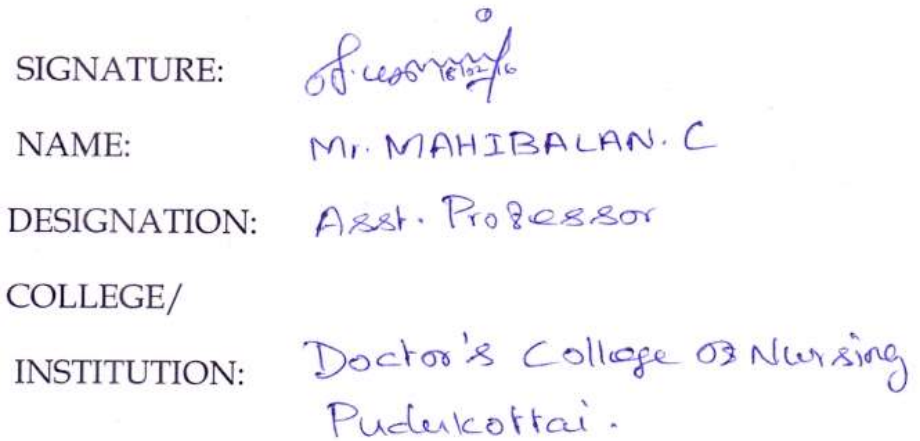 SIGNATURE: 18/02/16
NAME: Mr. MAHIBALAN. C
DESIGNATION: Asst. Professor
COLLEGE/
INSTITUTION: Doctor's College of Nursing
Pudukottai.